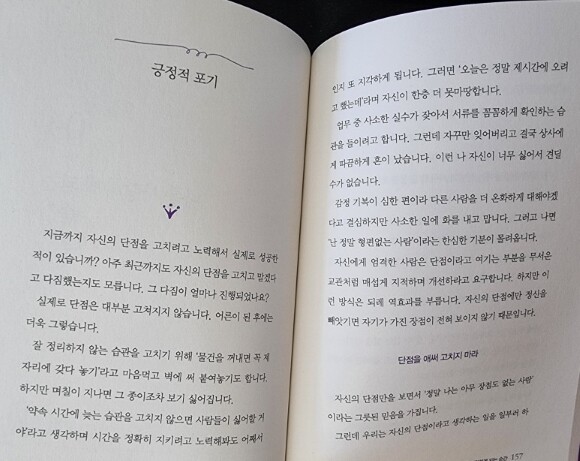 긍정적 포기
지금까지 자신의 단점을 고치려고 노력해서 실제로 성공한
적이 있습니까? 아주 최근까지도 자신의 단점을 고치고 말겠다
고 다짐했는지도 모릅니다. 그 다짐이 얼마나 진행되었나요?
실제로 단점은 대부분 고쳐지지 않습니다. 어른이 된 후에는
더욱 그렇습니다.
잘 정리하지 않는 습관을 고치기 위해 '물건을 꺼내면 꼭 제
자리에 갖다 놓기'라고 마음먹고 벽에 써 붙여놓기도 합니다.
하지만 며칠이 지나면 그 종이조차 보기 싫어집니다.
'약속 시간에 늦는 습관을 고치지 않으면 사람들이 싫어할 거
야'라고 생각하며 시간을 정확히 지키려고 노력해봐도 어째서
인지 또 지각하게 됩니다. 그러면 '오늘은 정말 제시간에 오려
고 했는데'라며 자신이 한층 더 못마땅합니다.
업무 중 사소한 실수가 잦아서 서류를 꼼꼼하게 확인하는 습
관을 들이려고 합니다. 그런데 자꾸만 잊어버리고 결국 상사에
게 따끔하게 혼이 났습니다. 이런 나 자신이 너무 싫어서 견딜
수가 없습니다.
감정 기복이 심한 편이라 다른 사람을 더 온화하게 대해야겠
다고 결심하지만 사소한 일에 화를 내고 맙니다. 그러고 나면
'난 정말 형편없는 사람'이라는 한심한 기분이 몰려옵니다.
자신에게 엄격한 사람은 단점이라고 여기는 부분을 무서운
교관처럼 매섭게 지적하며 개선하라고 요구합니다. 하지만 이
런 방식은 되레 역효과를 부릅니다. 자신의 단점에만 정신을
빼앗기면 자기가 가진 장점이 전혀 보이지 않기 때문입니다.
단점을 애써 고치지 마라
자신의 단점만을 보면서 '정말 나는 아무 장점도 없는 사람'
이라는 그릇된 믿음을 가집니다.
그런데 우리는 자신의 단점이라고 생각하는 일을 일부러 하
157